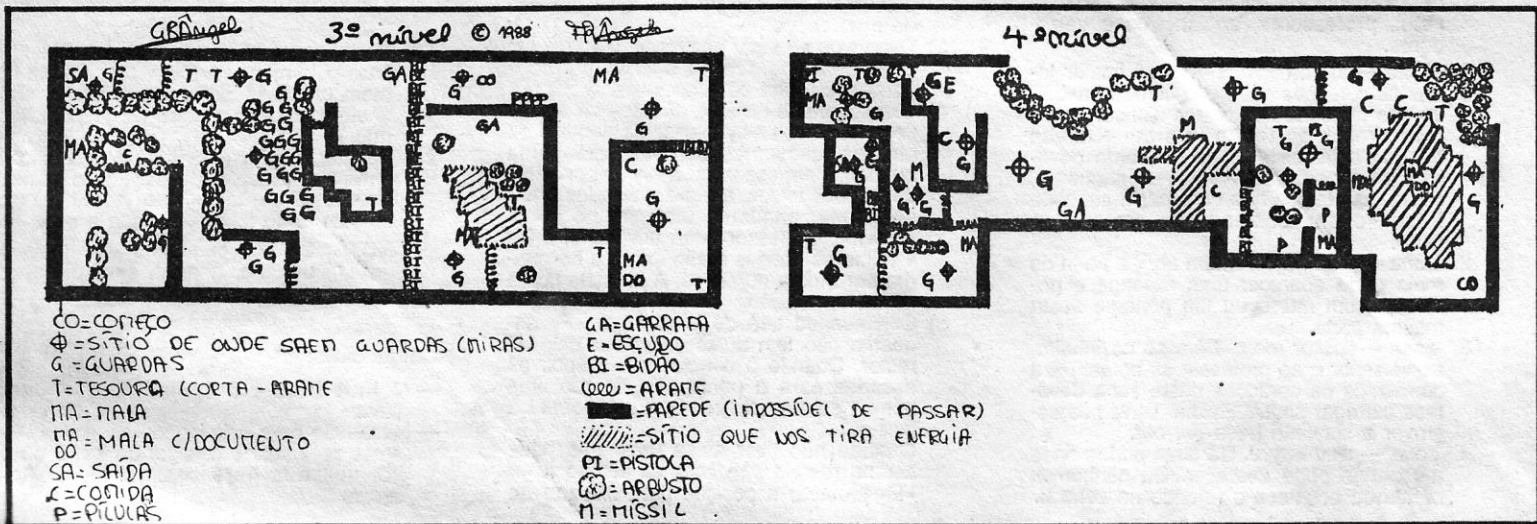 GBÂngel 3º nível © 1988
4º nível
SA G T T G GA BI G CO MA T
MA C G G G GA G C
T T G
G G MA T MA
DO T
PI T T G E T G G C C T
MA G C G M T PI G
SA G M G G G C MA
DO G
BI G GA P
T G MA G P MA CO
CO=COMEÇO
=SÍTIO DE ONDE SAEM GUARDAS (MIRAS)
G=GUARDAS
T=TESOURA (CORTA-ARAME
MA=MALA
MA
DO=MALA C/DOCUMENTO
SA=SAÍDA
C=COMIDA
P=PÍLULAS
GA=GARRAFA
E=ESCUDO
BI=BIDÃO
=ARAME
=PAREDE (IMPOSSÍVEL DE PASSAR)
=SÍTIO QUE NOS TIRA ENERGIA
PI=PISTOLA
=ARBUSTO
M=MÍSSIL